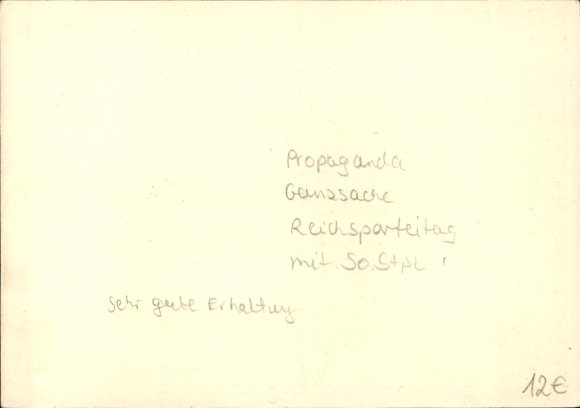 Propaganda
Ganzsache
Reichsparteitag
mit. So. Stpl '
Sehr gute Erhaltung
12€